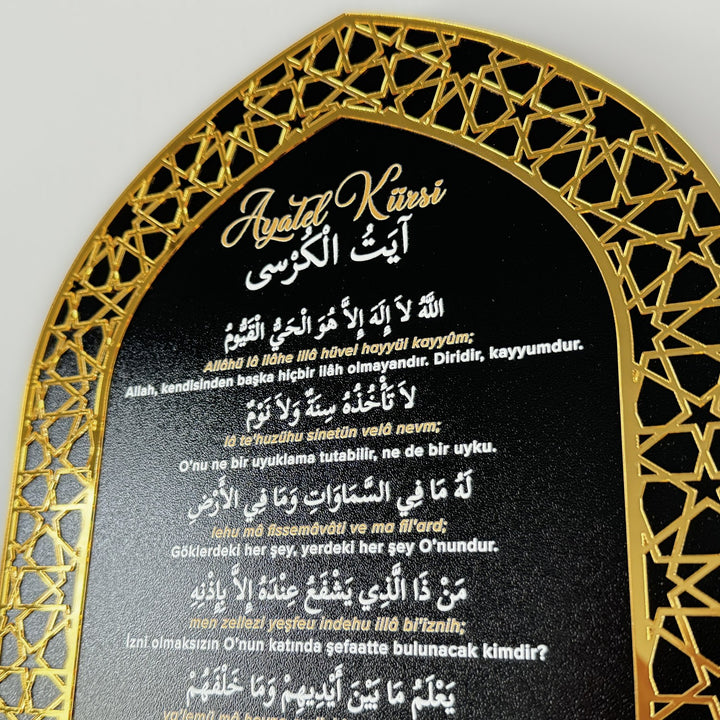 Ayatel Kürsi
آيَتُ الْكُرْسى
اَللّٰهُ لاَ إِلَهَ إِلاَّ هُوَ الْحَيُّ الْقَيُّومُ
Allâhü lâ ilâhe illâ hüvel hayyül kayyûm;
Allah, kendisinden başka hiçbir ilâh olmayandır. Diridir, kayyumdur.
لاَ تَأْخُذُهُ سِنَةٌ وَلاَ نَوْمٌ
lâ te'huzühu sinetün velâ nevm;
O'nu ne bir uyuklama tutabilir, ne de bir uyku.
لَهُ مَا فِي السَّمَاوَاتِ وَمَا فِي الأَرْضِ
lehu mâ fissemâvâti ve ma fil'ard;
Göklerdeki her şey, yerdeki her şey O'nundur.
مَنْ ذَا الَّذِي يَشْفَعُ عِنْدَهُ إِلاَّ بِإِذْنِهِ
men zellezi yeşfeu indehu illâ bi'iznih;
İzni olmaksızın O'nun katında şefaatte bulunacak kimdir?
يَعْلَمُ مَا بَيْنَ أَيْدِيهِمْ وَمَا خَلْفَهُمْ